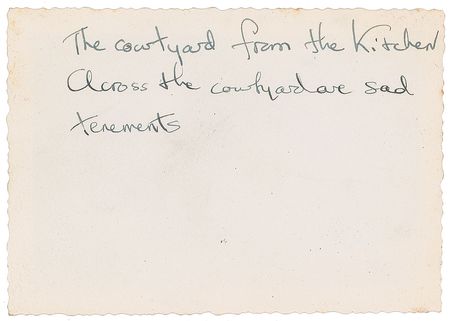 The courtyard from the Kitchen
Across the courtyard are sad
tenements